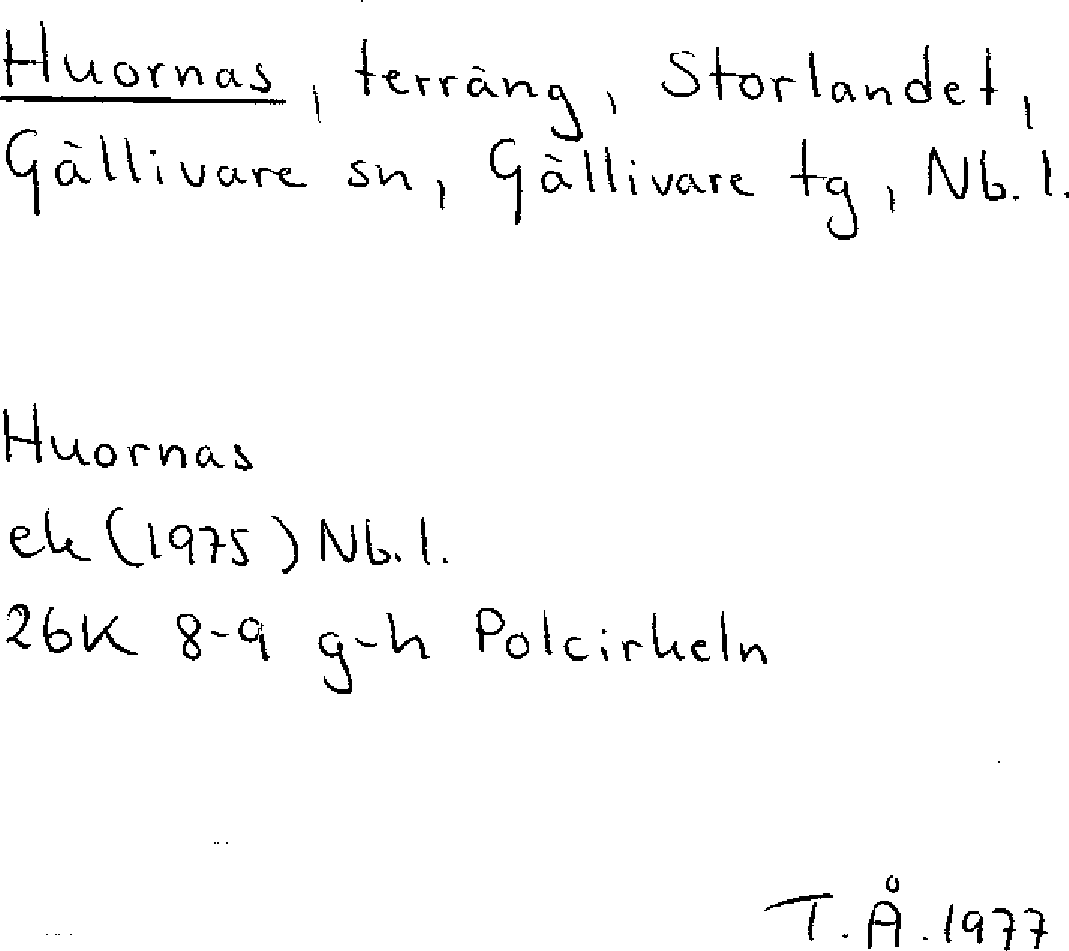 Huornas, terräng, Storlandet,
Gällivare sn, Gällivare tg, Nb. l.
Huornas
ek (1975) Nb. l.
26K 8-9 g-h Polcirkeln
T. Å. 1977